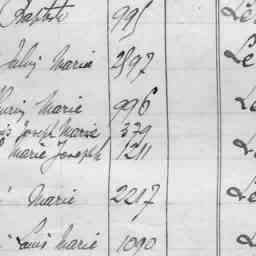 Baptiste 995 Le
Marie 2597 Le
Marie 996 Le
Joseph Marie 379
Marie Joseph 1211 Le
Marie 2217 Le
Louis Marie 1090 Le